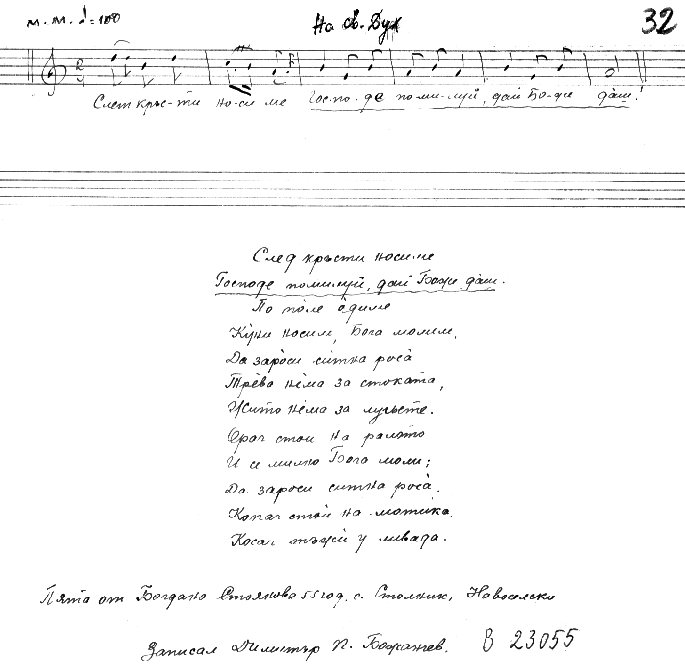 м. м. ♩=100
На св. Дух
32
След кръс-ти но-си ме Гос-по-де поми-луй, дай Бо-же даж!
След кръсти носиме
Господе помилуй, дай Боже даж.
По поле одиме
Кръсти носим, Бога молим,
Да зароси ситна роса
Трева нема за стоката,
Жито нема за лугьете.
Орач стои на ралото
И се милно Бога моли;
Да зароси ситна роса.
Копач стои на мотика.
Косач тъжи у ливада.
Пята от Богдана Стоянова 55 год. с. Столник, Новоселско
Записал Димитър П. Божанчев.
В 23055